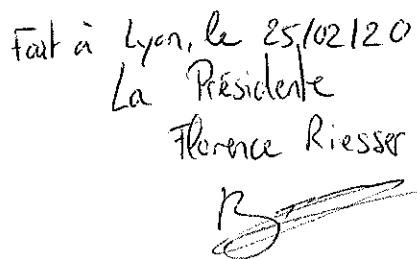 Fait à Lyon, le 25/02/20
La Présidente
Florence Riesser